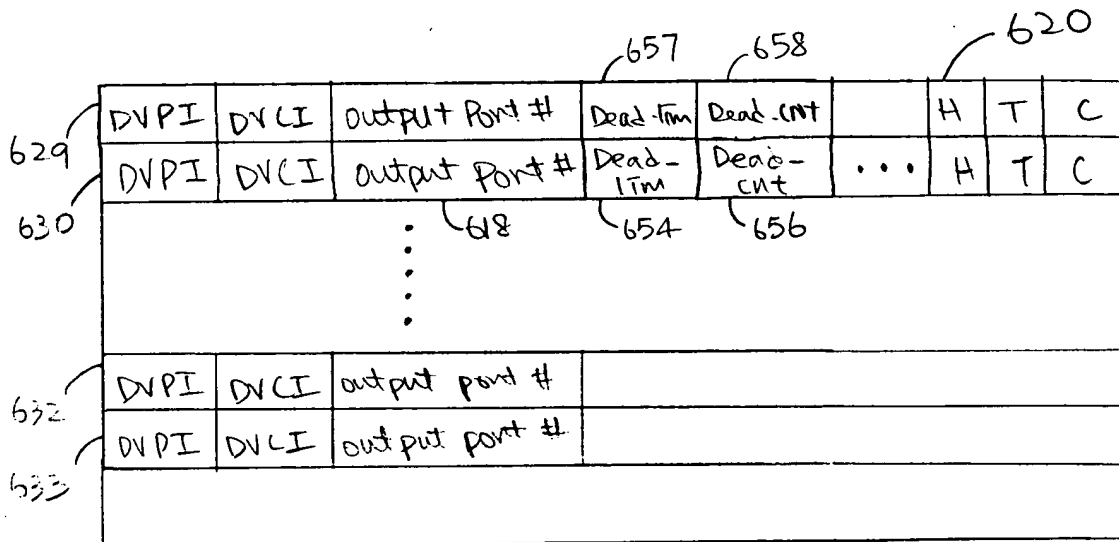 657 658 620
629 DVPI DVCI Output Port # Dead-Tim Dead-CNT H T C
630 DVPI DVCI output Port # Dead-Tim Dead-cnt ... H T C
618 654 656
632 DVPI DVCI output port #
633 DVPI DVCI output port #